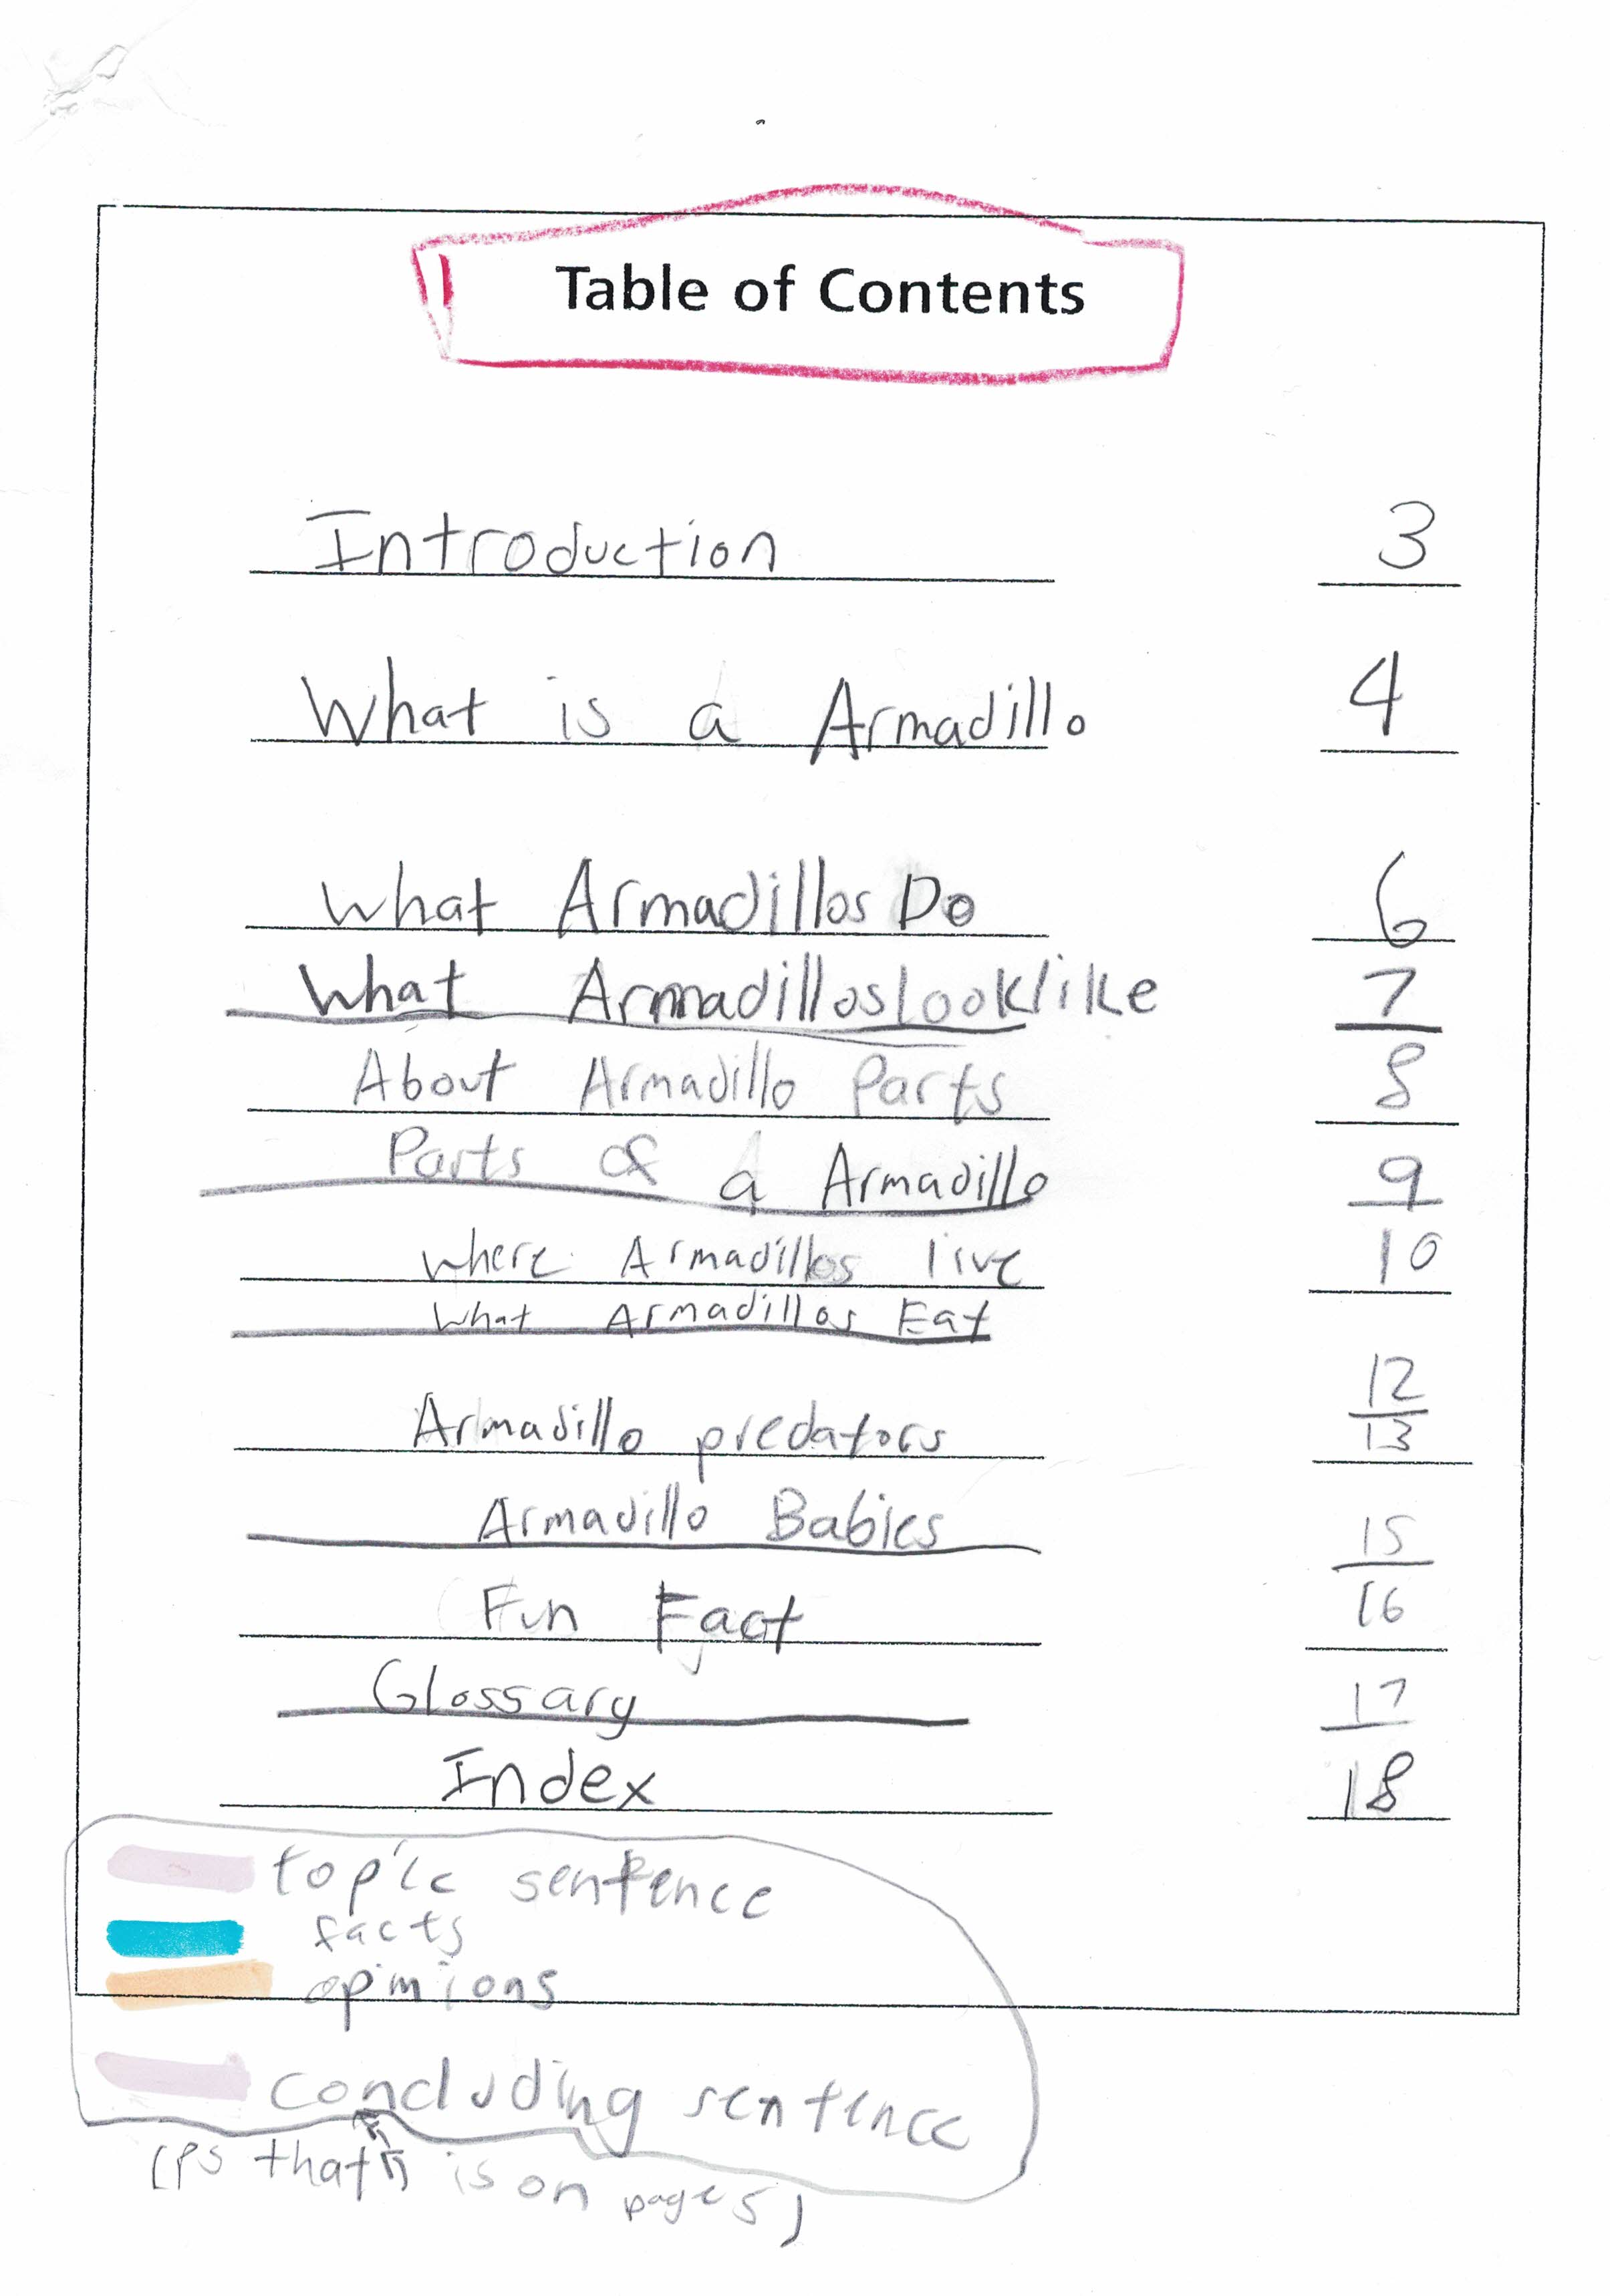 Table of Contents
Introduction 3
What is a Armadillo 4
What Armadillos Do 6
What Armadillos look like 7
About Armadillo Parts 8
Parts of a Armadillo 9
where Armadillos live 10
What Armadillos Eat 12
Armadillo predators 13
Armadillo Babies 15
Fun Fact 16
Glossary 17
Index 18
topic sentence
facts
opinions
concluding sentence
(PS that is on page 5)